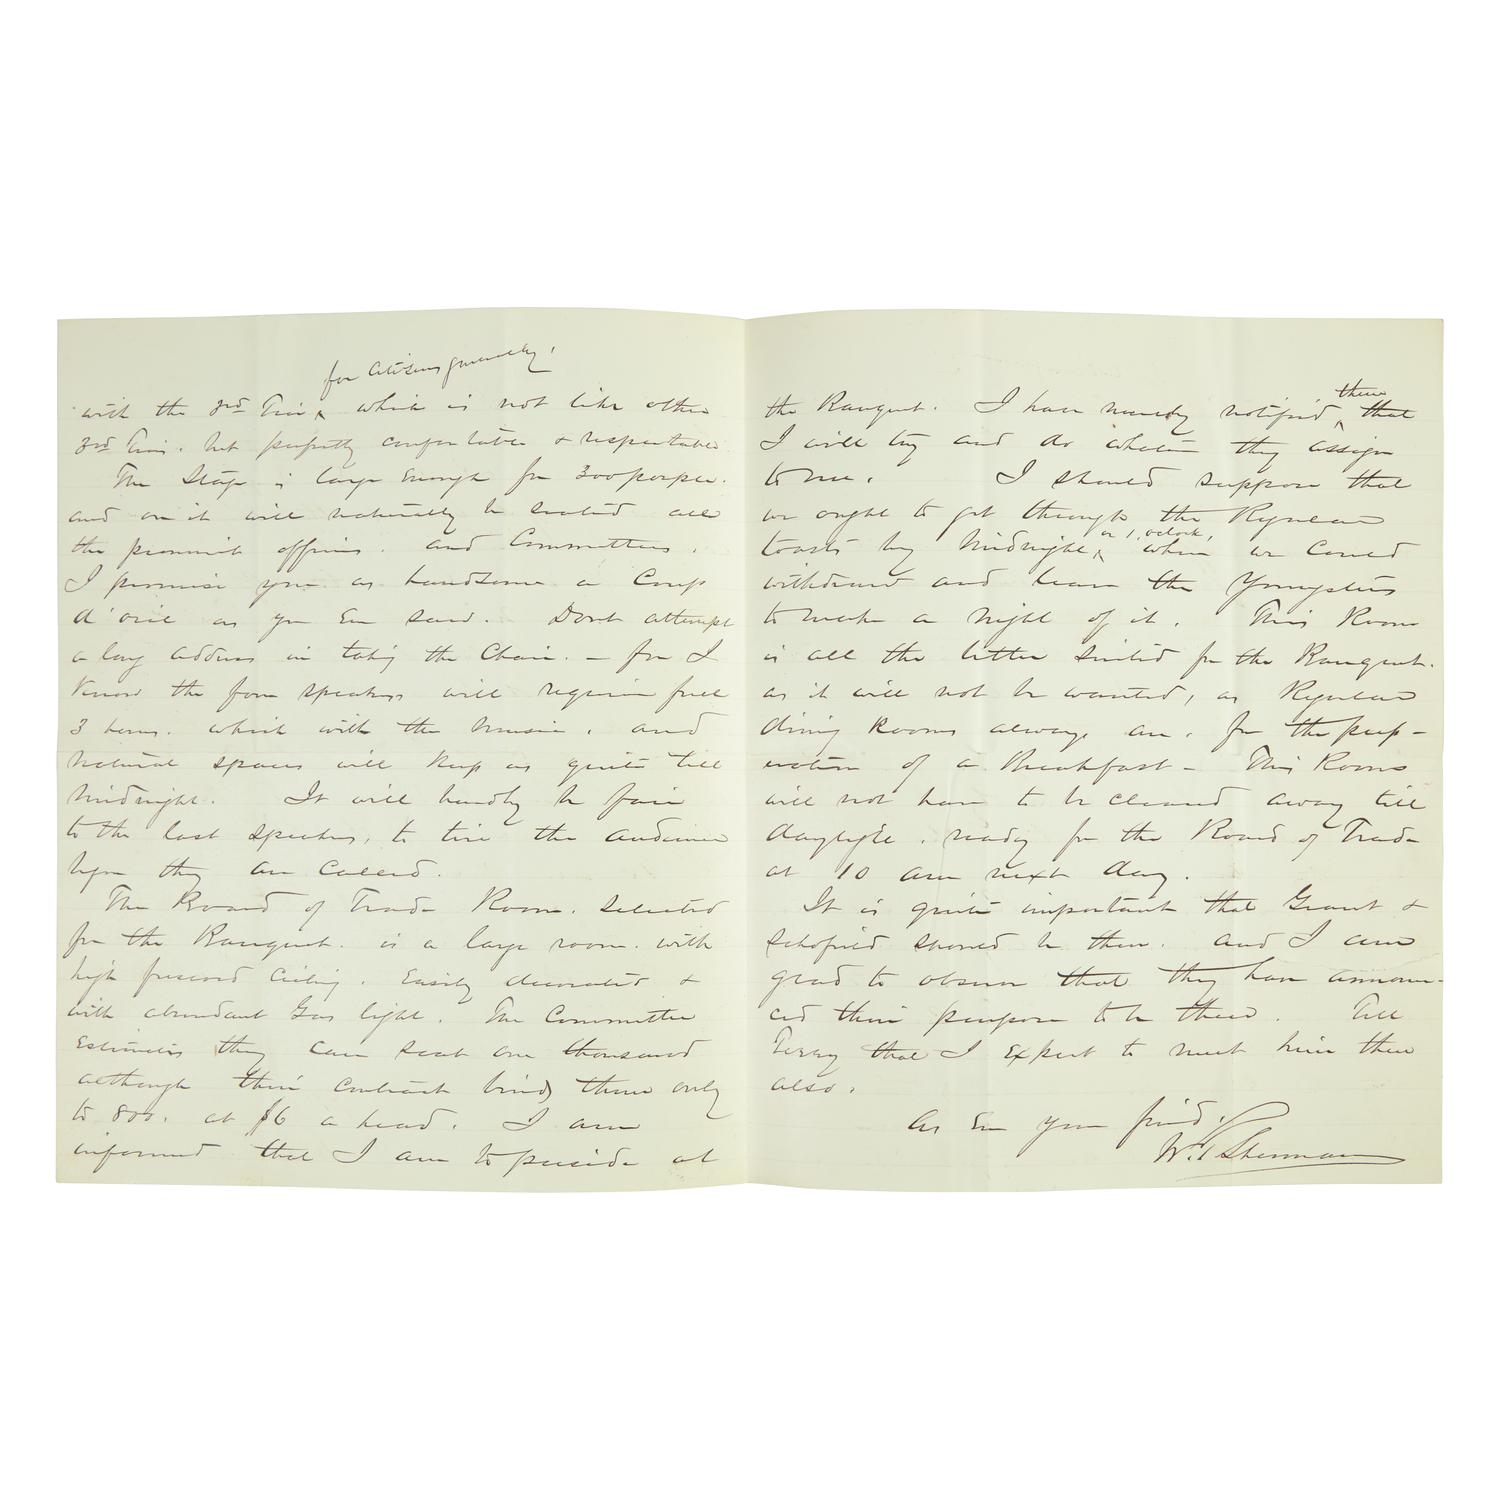 for citizens generally!
with the 3rd Tier ^ which is not like other
3rd Tiers. but perfectly comfortable & respectable.
The Stage is large enough for 300 people.
and on it will naturally be seated all
the prominent officers. and Committees.
I promise you as handsome a Coup
d'oeil as you Ever saw. Dont attempt
a long address in taking the Chair. - for I
Know the four speakers will require full
3 hours. which with the music, and
natural spaces will Keep us quite till
midnight. It will hardly be fair
to the last speakers, to tire the audience
before they are called.
The Board of Trade Room. Selected
for the Banquet. is a large room. with
high frescoed Ceiling. Easily decorated &
with abundant Gas light. The Committee
Estimates they can seat one thousand
although their contract binds them only
to 800. at $6 a head. I am
informed that I am to preside at
the Banquet. I have already notified ^ that
them
I will try and do whatever they assign
to me. I should suppose that
we ought to get through the Regular
toasts by Midnight ^ when we could
or 1, oclock,
withdraw and leave the Youngsters
to make a night of it. This Room
is all the better suited for the Banquet.
as it will not be wanted, as Regular
dining Rooms always are, for the prep-
eration of a Breakfast - This Room
will not have to be cleared away till
daylight, ready for the Board of Trade
at 10 am next day.
It is quite important that Grant &
Schofield should be there. and I am
glad to observe that they have announ-
ced their purpose to be there. Tell
Terry that I Expect to meet him there
also.
As Ever your friend,
W. T. Sherman